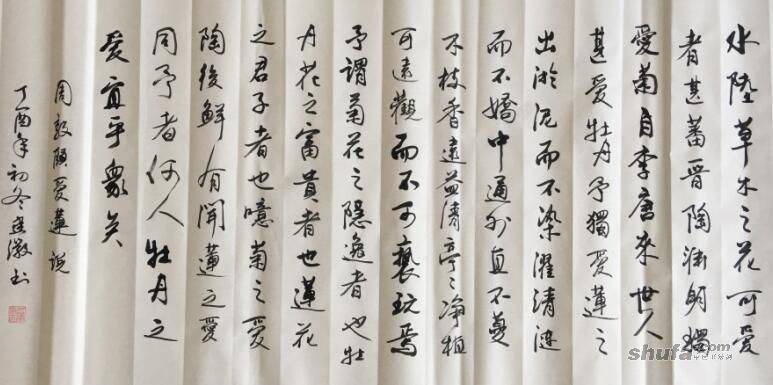 水陸草木之花可愛
者甚蕃晉陶淵明獨
愛菊自李唐來世人
甚愛牡丹予獨愛蓮之
出淤泥而不染濯清漣
而不嬌中通外直不蔓
不枝香遠益清亭々净植
可遠觀而不可褻玩焉
予謂菊花之隱逸者也牡
丹花之富貴者也蓮花
之君子者也噫菊之愛
陶後鮮有聞蓮之愛
同予者何人牡丹之
愛宜乎衆矣
周敦頤愛蓮説
丁酉年初冬建书
shufa